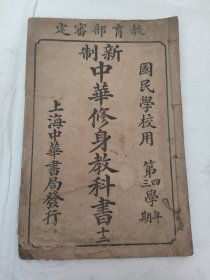 教育部審定
國民學校用
第四學年
第三期
新制
中華修身教科書 十二
上海中華書局發行